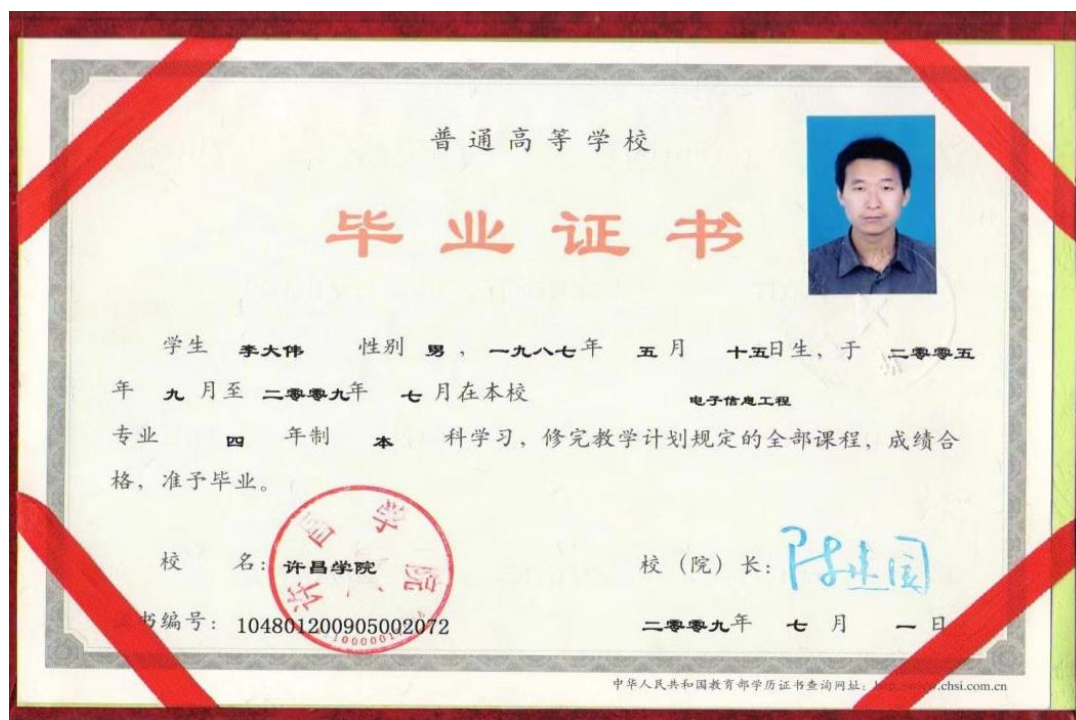 普通高等学校
毕业证书
学生 李大伟 性别 男 ， 一九八七年 五月 十五日生，于 二零零五
年 九 月至 二零零九年 七 月在本校 电子信息工程
专业 四 年制 本 科学习，修完教学计划规定的全部课程，成绩合
格，准予毕业。
校 名：许昌学院 校（院）长：陈建国
书编号：104801200905002072 二零零九年 七 月 一 日
许昌学院
中华人民共和国教育部学历证书查询网址： .chsi.com.cn